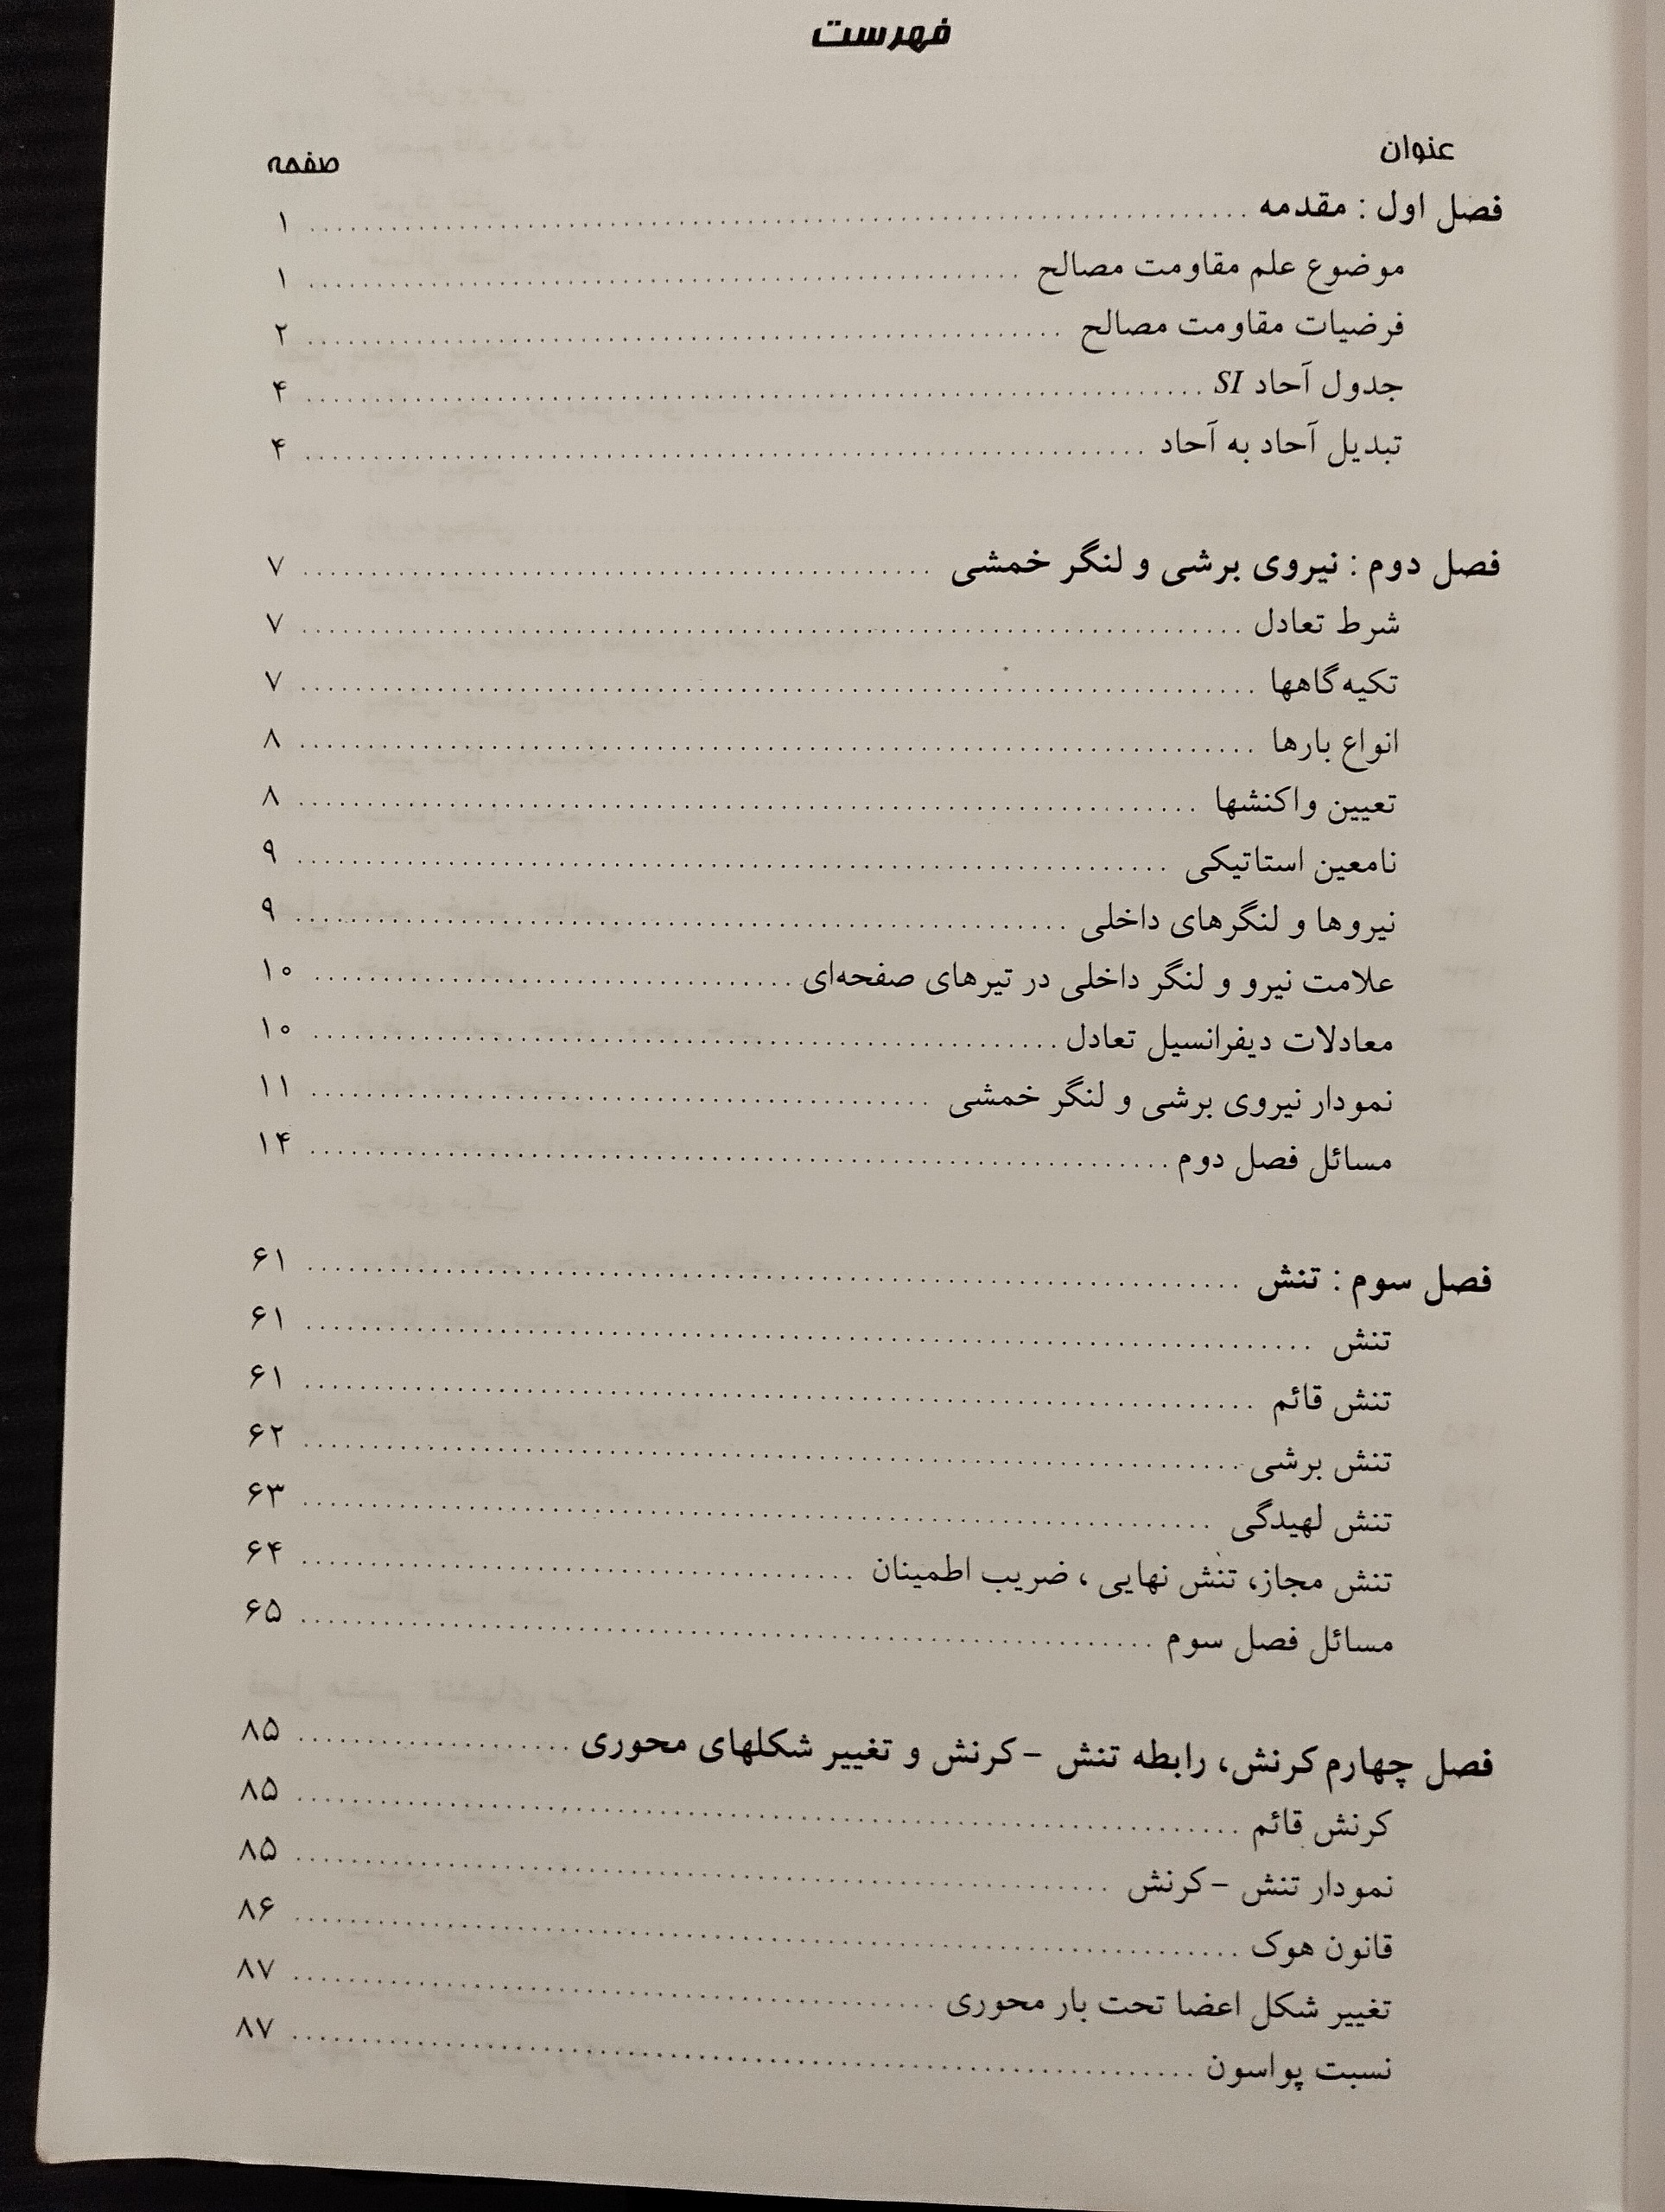 فهرست
عنوان صفحه
فصل اول : مقدمه ........ ۱
موضوع علم مقاومت مصالح ........ ۱
فرضیات مقاومت مصالح ........ ۲
جدول آحاد SI ........ ۴
تبدیل آحاد به آحاد ........ ۴
فصل دوم : نیروی برشی و لنگر خمشی ........ ۷
شرط تعادل ........ ۷
تکیه‌گاهها ........ ۷
انواع بارها ........ ۸
تعیین واکنشها ........ ۸
نامعین استاتیکی ........ ۹
نیروها و لنگرهای داخلی ........ ۹
علامت نیرو و لنگر داخلی در تیرهای صفحه‌ای ........ ۱۰
معادلات دیفرانسیل تعادل ........ ۱۰
نمودار نیروی برشی و لنگر خمشی ........ ۱۱
مسائل فصل دوم ........ ۱۴
فصل سوم : تنش ........ ۶۱
تنش ........ ۶۱
تنش قائم ........ ۶۱
تنش برشی ........ ۶۲
تنش لهیدگی ........ ۶۳
تنش مجاز، تنش نهایی ، ضریب اطمینان ........ ۶۴
مسائل فصل سوم ........ ۶۵
فصل چهارم کرنش، رابطه تنش - کرنش و تغییر شکلهای محوری ........ ۸۵
کرنش قائم ........ ۸۵
نمودار تنش - کرنش ........ ۸۵
قانون هوک ........ ۸۶
تغییر شکل اعضا تحت بار محوری ........ ۸۷
نسبت پواسون ........ ۸۷